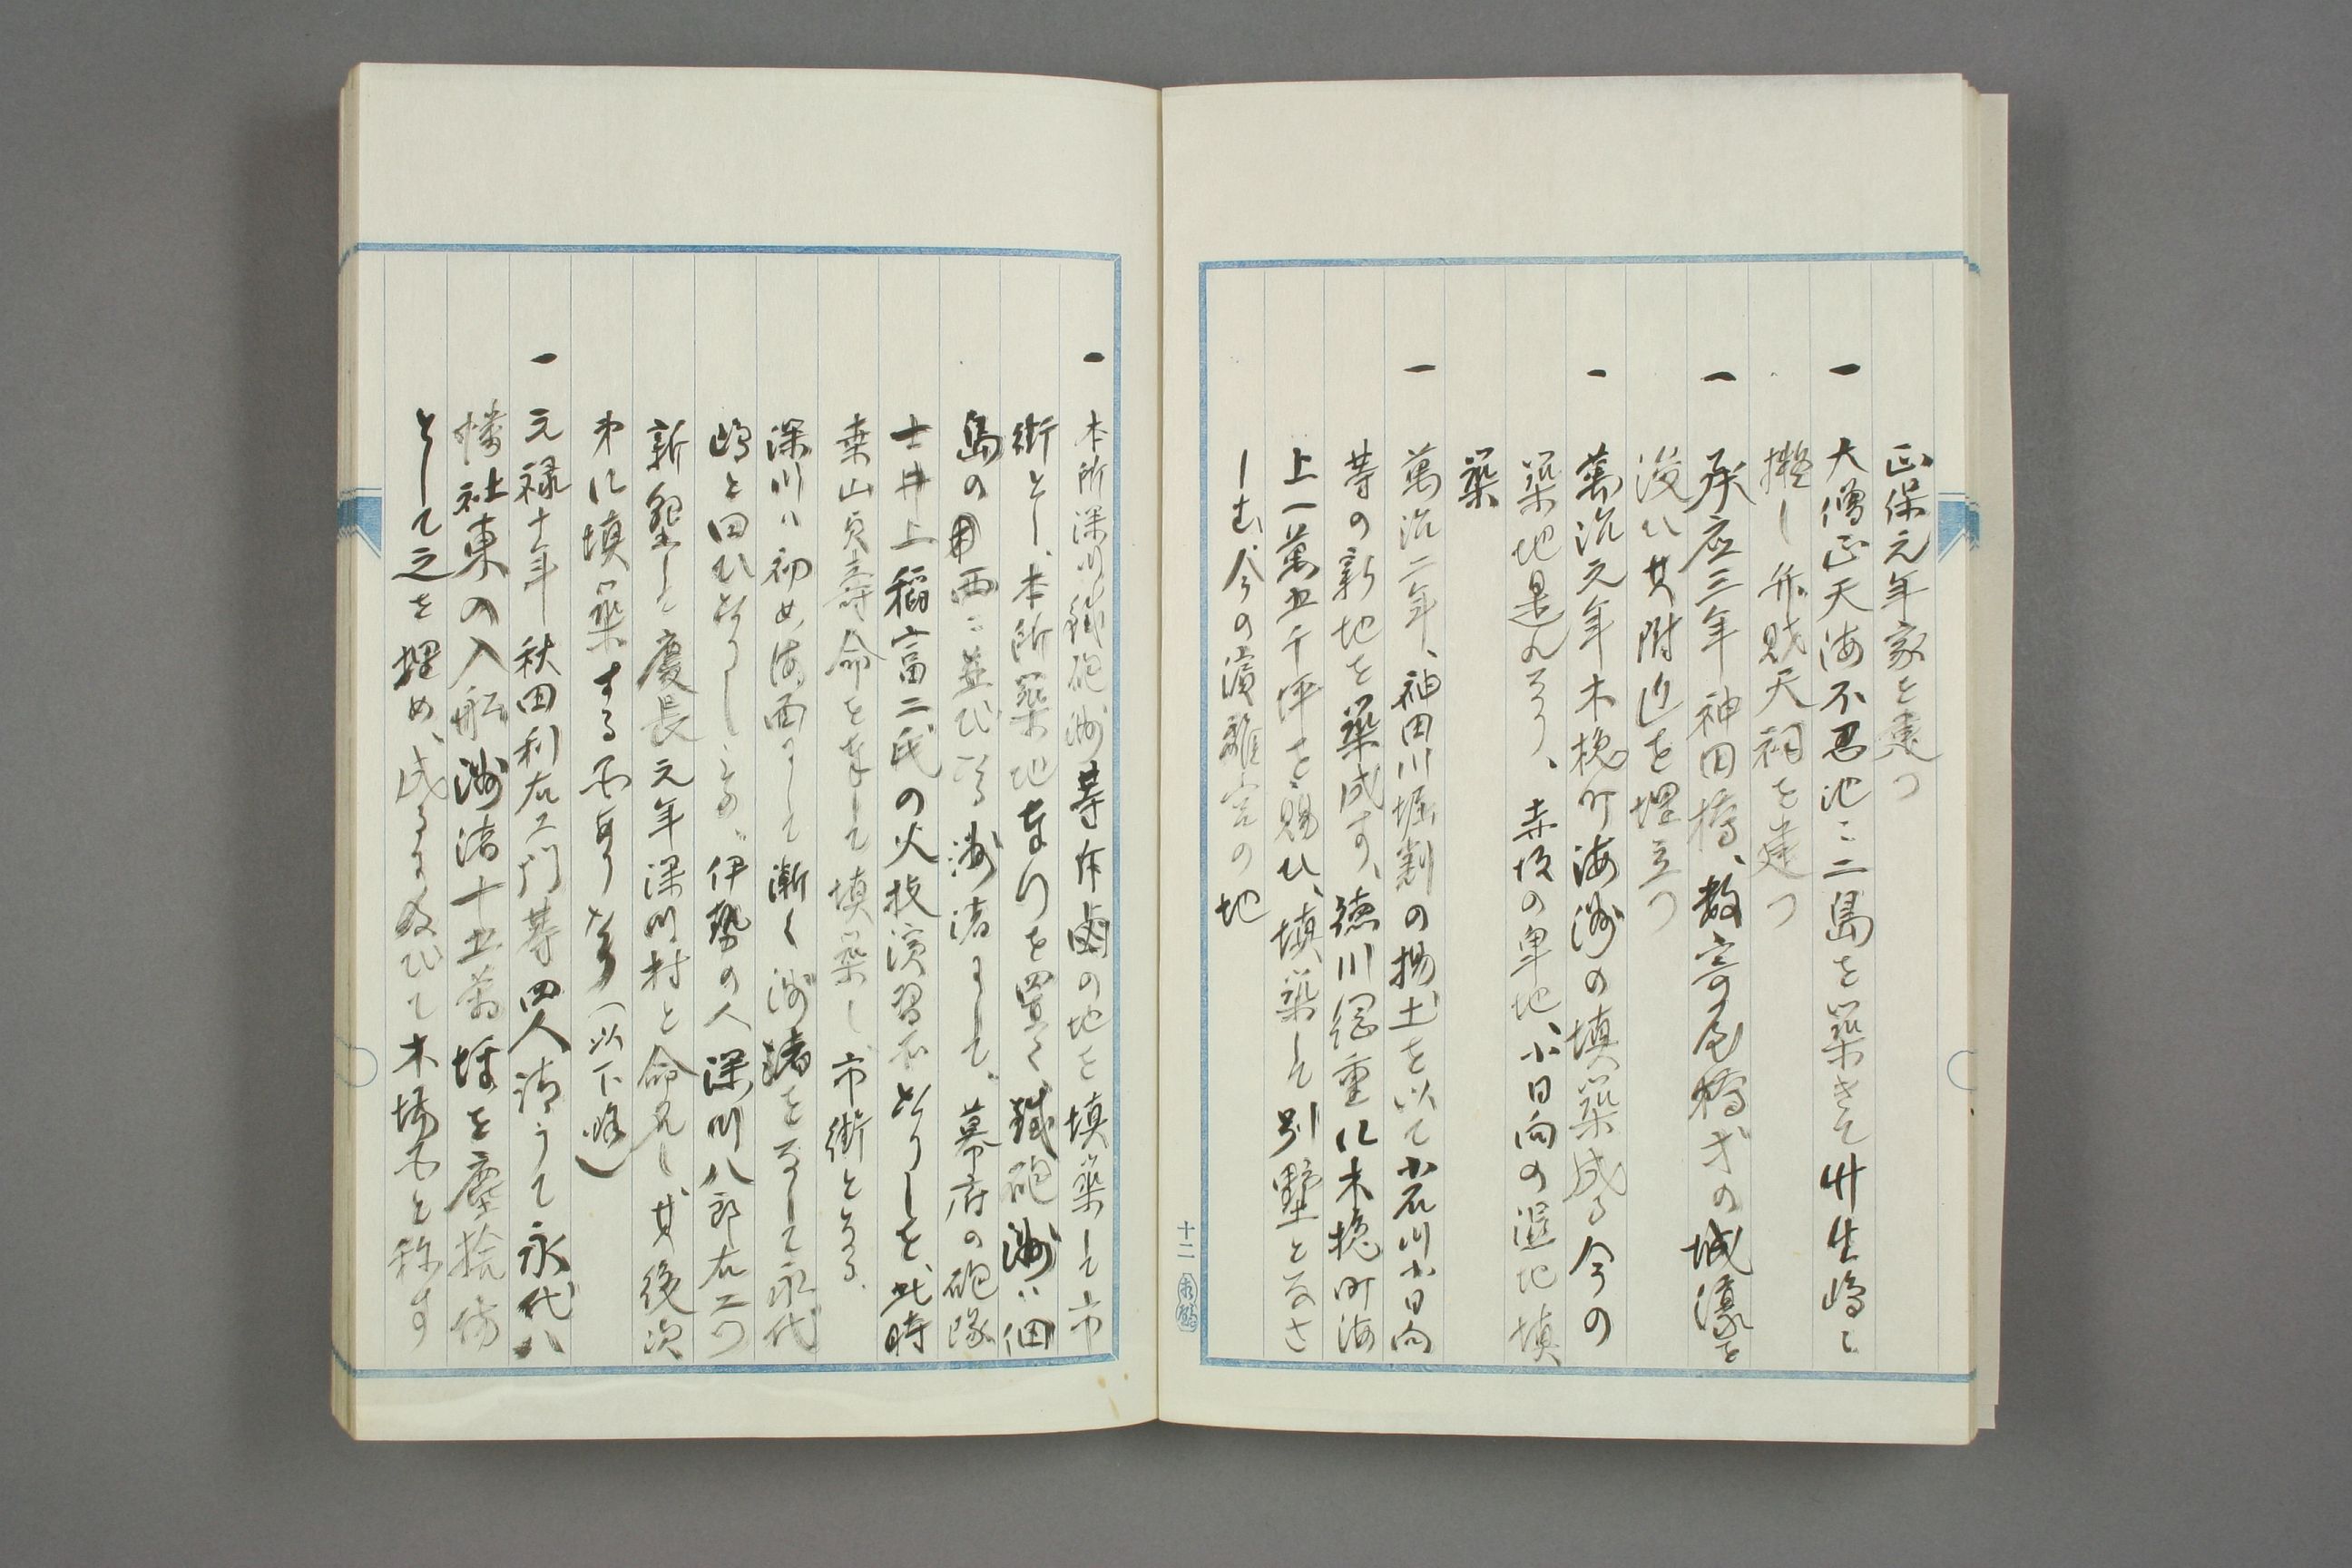 正保元年家を建つ
一 大僧正天海不忍池ニ二島を築きて竹生嶋に
擬し弁財天祠を建つ
一 承應三年神田橋、数寄屋橋才の城濠を
浚ひ其附近を埋立つ
一 萬治元年木挽町海洲の填築成る今の
築地是れなり、赤坂の卑地小日向の湿地填
築
一 萬治二年、神田川堀割の揚土を以て小石川小日向
等の新地を築成す、徳川綱重に木挽町海
上一萬五千坪を賜ひ、填築して別墅となさ
しむ、今の濱離宮の地
十二
一 本所深川鐵砲洲等斥鹵の地を填築して市
街とし、本所築地奉行を置く鐵砲洲ハ佃
島の西ニ並びたる洲渚にして、幕府の砲隊
士井上稲富二氏の火技演習所なりしを、此時
桒山貞寿命を奉して填築し市街となる、
深川ハ初め海面にして漸く洲渚をなして永代
嶋と曰ひなりし、伊勢の人深川八郎右エ門
新墾して慶長元年深川村と命名し其後次
第に填築する所あり(以下略)
一 元禄十年秋田利右エ門等四人請うて永代八
幡社東の入船洲渚十五萬坪を塵捨場
として之を埋め、成るに及びて木場町と称す